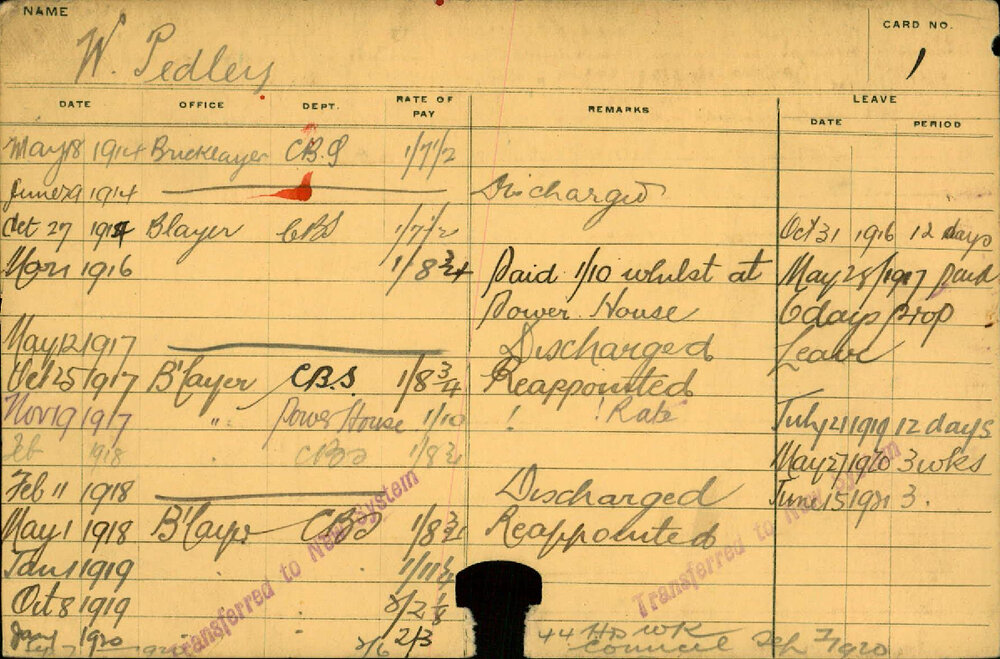 NAME
W. Pedley
CARD NO.
1
DATE OFFICE DEPT. RATE OF PAY REMARKS LEAVE
DATE PERIOD
May 18 1914 Bricklayer C.B.S 1/7 1/2
June 29 1914 Discharged
Oct 27 1914 Blayer CBS 1/7 1/2 Oct 31 1916 12 days
1916 1/8 3/4 Paid 1/10 whilst at May 28/1917 paid
Power House 6 days prop
May 12 1917 Discharged Leave
Oct 25 1917 B'layer C.B.S 1/8 3/4 Reappointed
Nov 19 1917 " Power House 1/10 ! ! Rate July 21 1919 12 days
Feb 1918 CBS 1/8 3/4 May 27 1920 3 wks
Feb 11 1918 Discharged June 15 1921 3.
May 1 1918 B'layer CBS 1/8 3/4 Reappointed
Jan 1 1919 1/11 1/4
Oct 8 1919 2/2 1/8
Jany 1920 2/3 44 Hr wk
2/6 Council Sep 7/1920
Transferred to New System
Transferred to New System